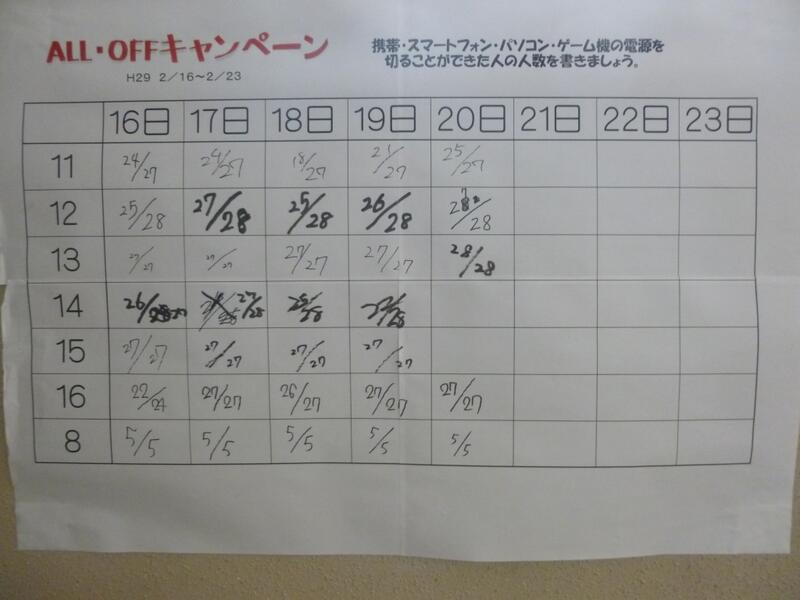 ALL・OFFキャンペーン
携帯・スマートフォン・パソコン・ゲーム機の電源を
切ることができた人の人数を書きましょう。
H29 2/16~2/23
16日 17日 18日 19日 20日 21日 22日 23日
11 24/27 24/27 18/27 21/27 25/27
12 25/28 27/28 25/28 26/28 /28
13 27/27 27/27 27/27 27/27 28/28
14 26/ 27/28 /28 /28
15 27/27 27/27 27/27 27/27
16 22/24 27/27 26/27 27/27 27/27
8 5/5 5/5 5/5 5/5 5/5